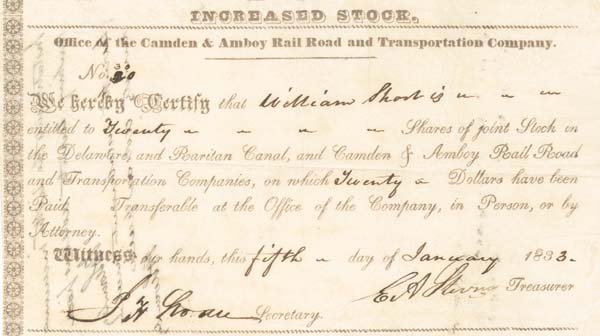 INCREASED STOCK.
Office of the Camden & Amboy Rail Road and Transportation Company.
No. 20
We hereby Certify that William Short is
entitled to Twenty Shares of joint Stock in
the Delaware, and Raritan Canal, and Camden & Amboy Rail Road
and Transportation Companies, on which Twenty Dollars have been
Paid. Transferable at the Office of the Company, in Person, or by
Attorney.
Witness our hands, this fifth day of January 1833.
Secretary. E A Stevens Treasurer